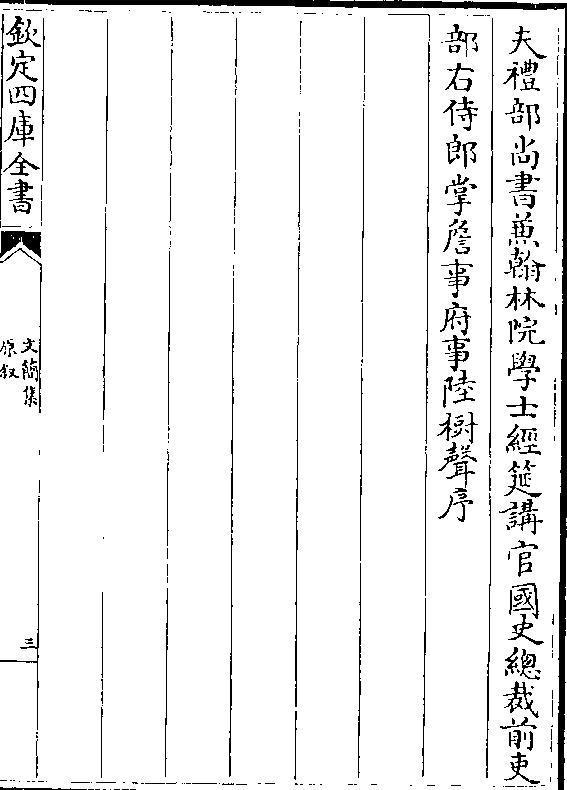 夫禮部尚書兼翰林院學士經筵講官國史總裁前吏
部右侍郎掌詹事府事陸樹聲序
欽定四庫全書
文簡集
原叙
三